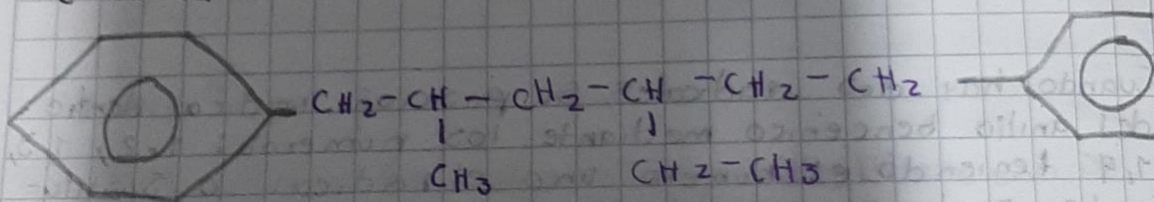 CH2-CH-CH2-CH-CH2-CH2
CH3 CH2-CH3